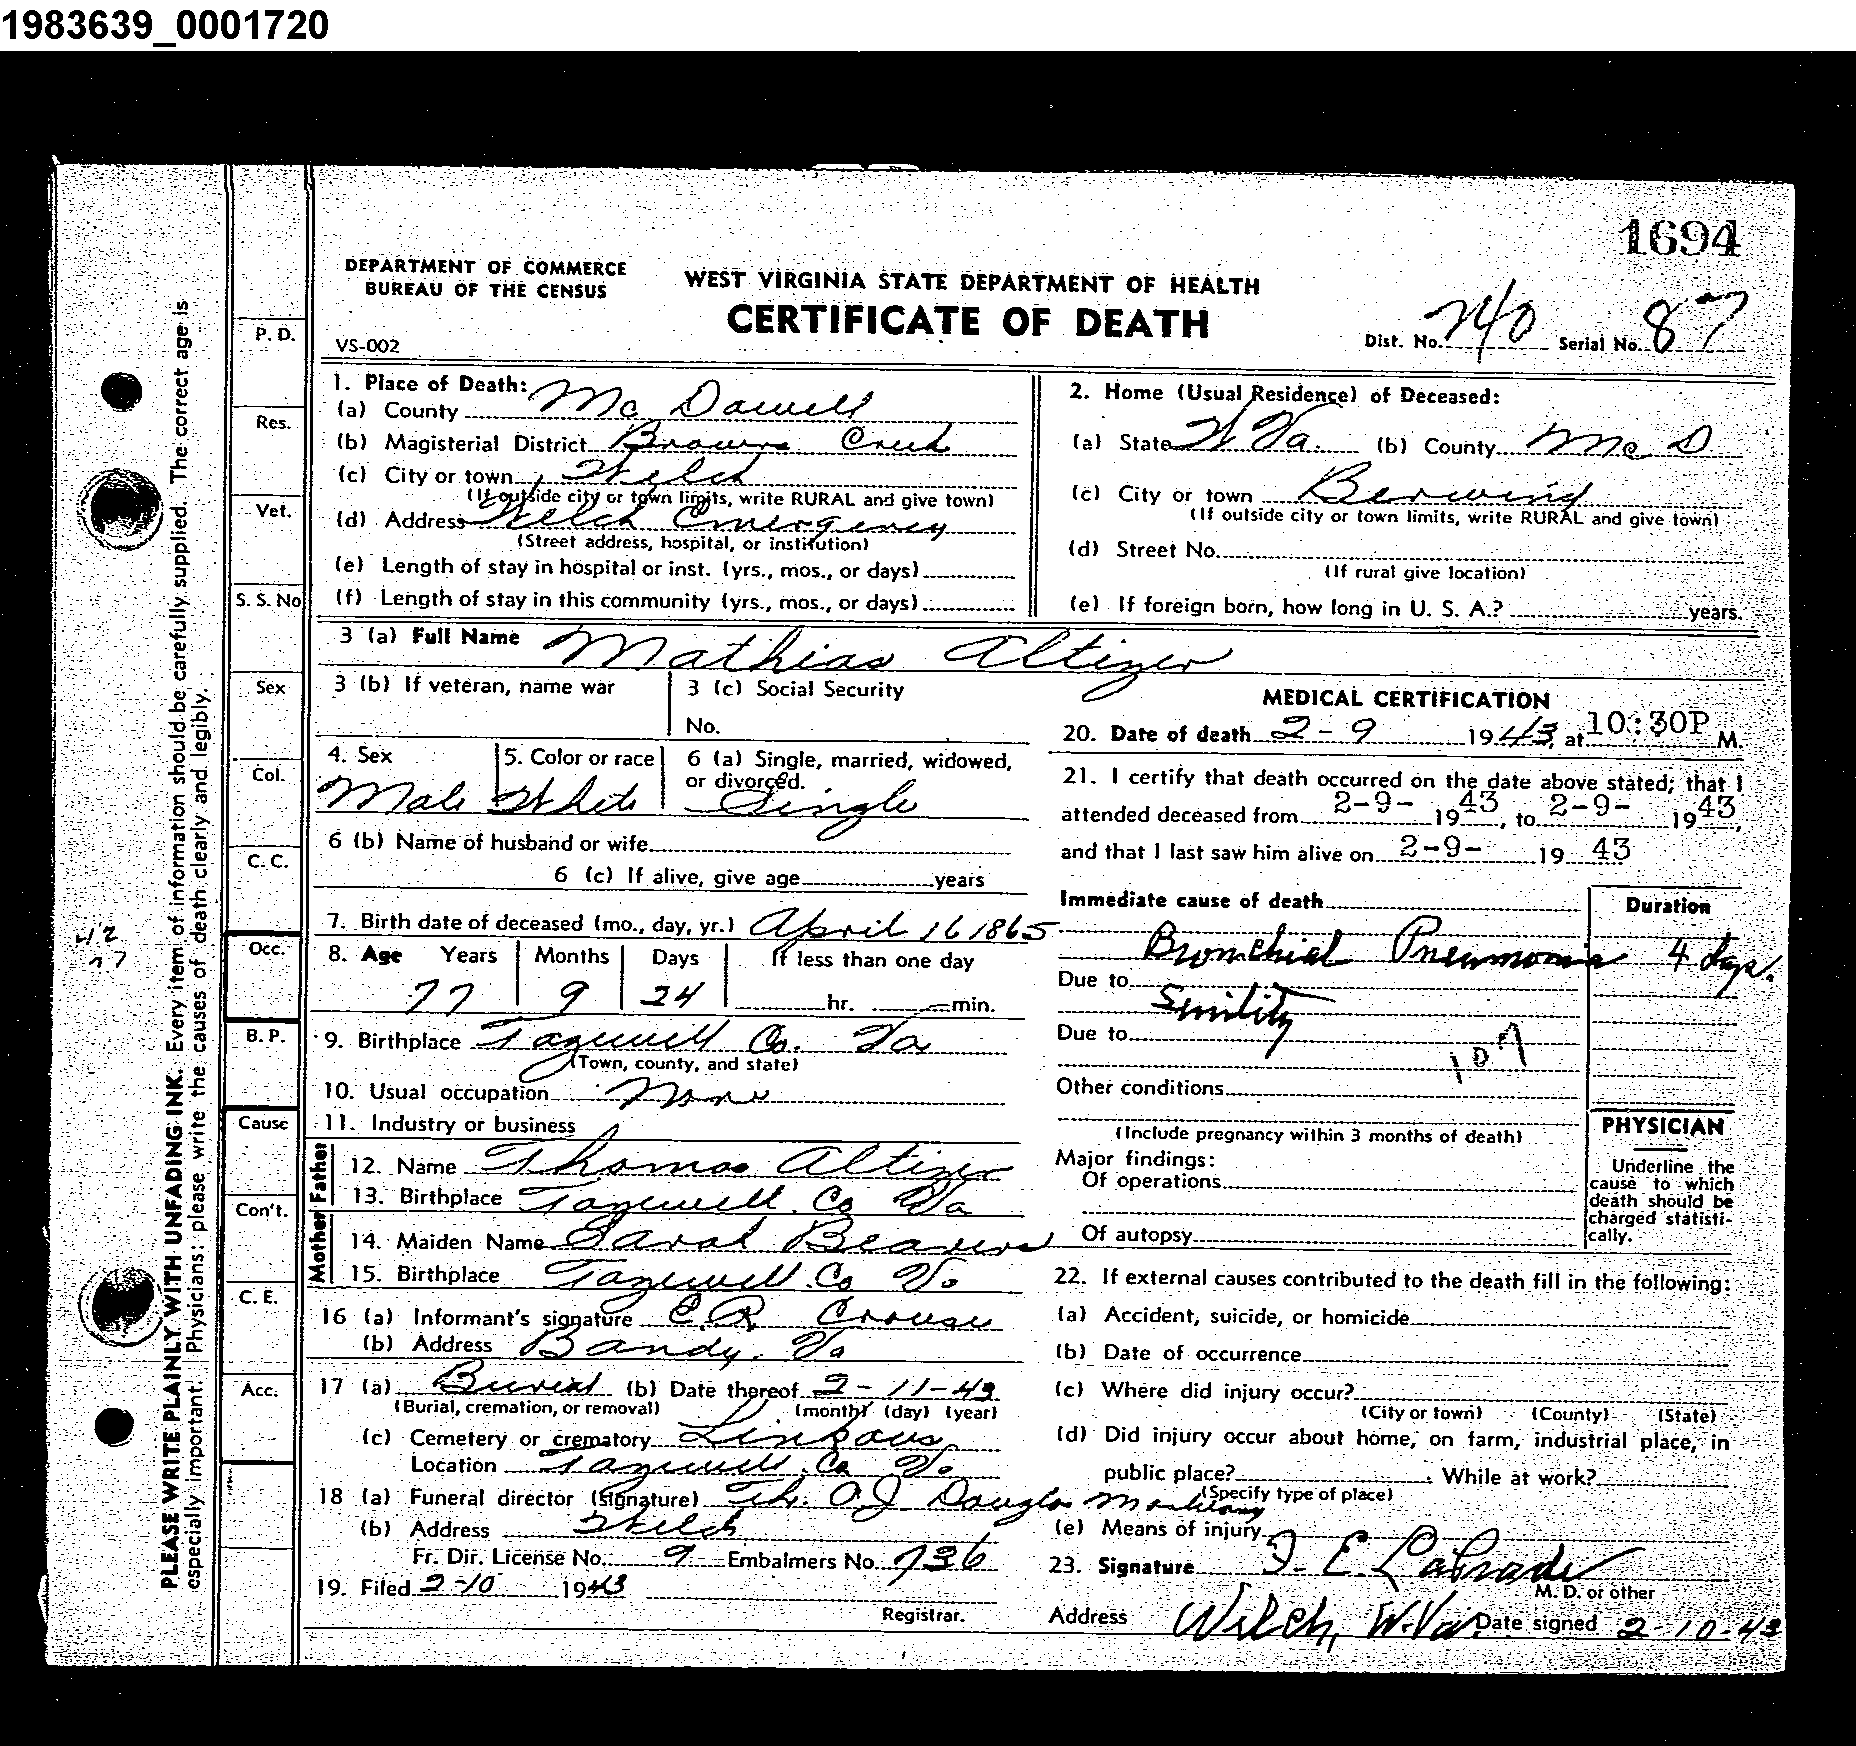 1983639_0001720
1694
DEPARTMENT OF COMMERCE
BUREAU OF THE CENSUS
WEST VIRGINIA STATE DEPARTMENT OF HEALTH
CERTIFICATE OF DEATH
VS-002
Dist. No. 240 Serial No. 87
1. Place of Death:
(a) County Mc Dowell
(b) Magisterial District Browns Creek
(c) City or town Welch
(If outside city or town limits, write RURAL and give town)
(d) Address Welch Emergency
(Street address, hospital, or institution)
(e) Length of stay in hospital or inst. (yrs., mos., or days)
(f) Length of stay in this community (yrs., mos., or days)
2. Home (Usual Residence) of Deceased:
(a) State W Va. (b) County Mc D
(c) City or town Berwind
(If outside city or town limits, write RURAL and give town)
(d) Street No.
(If rural give location)
(e) If foreign born, how long in U. S. A.? years.
3 (a) Full Name Mathias Altizer
3 (b) If veteran, name war
3 (c) Social Security
No.
4. Sex
Male
5. Color or race
White
6 (a) Single, married, widowed,
or divorced.
Single
6 (b) Name of husband or wife
6 (c) If alive, give age years
7. Birth date of deceased (mo., day, yr.) April 16 1865
8. Age Years Months Days If less than one day
77 9 24 hr. min.
9. Birthplace Tazewell Co. Va
(Town, county, and state)
10. Usual occupation None
11. Industry or business
Father
12. Name Thomas Altizer
13. Birthplace Tazewell Co Va
Mother
14. Maiden Name Sarah Beavers
15. Birthplace Tazewell Co Va
16 (a) Informant's signature C.R. Crouse
(b) Address Bandy. Va
17 (a) Burial (b) Date thereof 2-11-43
(Burial, cremation, or removal) (month) (day) (year)
(c) Cemetery or crematory Linkous
Location Tazewell Co Va
18 (a) Funeral director (signature) Th. O.J. Douglas Mortuary
(b) Address Welch
Fr. Dir. License No. 9 Embalmers No. 736
19. Filed 2-10 1943
Registrar.
MEDICAL CERTIFICATION
20. Date of death 2-9 1943, at 10:30P M.
21. I certify that death occurred on the date above stated; that I
attended deceased from 2-9- 1943, to 2-9- 1943,
and that I last saw him alive on 2-9- 1943
Immediate cause of death
Duration
Bronchial Pneumonia 4 days.
Due to Senility
Due to
107
Other conditions
(Include pregnancy within 3 months of death)
Major findings:
Of operations
Of autopsy
PHYSICIAN
Underline the
cause to which
death should be
charged statisti-
cally.
22. If external causes contributed to the death fill in the following:
(a) Accident, suicide, or homicide
(b) Date of occurrence
(c) Where did injury occur?
(City or town) (County) (State)
(d) Did injury occur about home, on farm, industrial place, in
public place? While at work?
(Specify type of place)
(e) Means of injury
23. Signature F. E. LaPrade
M. D. or other
Address Welch, W.Va. Date signed 2-10-43
P. D.
Res.
Vet.
S. S. No
Sex
Col.
C. C.
Occ.
B. P.
Cause
Con't.
C. E.
Acc.
PLEASE WRITE PLAINLY WITH UNFADING INK. Every item of information should be carefully supplied. The correct age is
especially important. Physicians: please write the causes of death clearly and legibly.